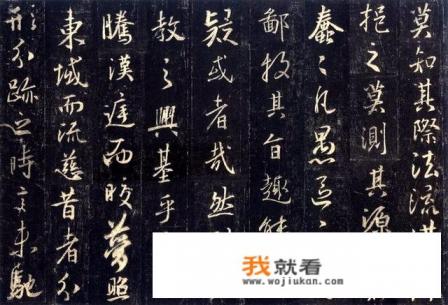 莫知其際法流湛
挹之莫測其源
蠢々凡愚區々
鄙投其旨趣能
疑或者哉然
教之興基乎
騰漢庭而皎夢照
東域而流慈昔者分
形分跡之時言未馳
我就看
www.wojiukan.com